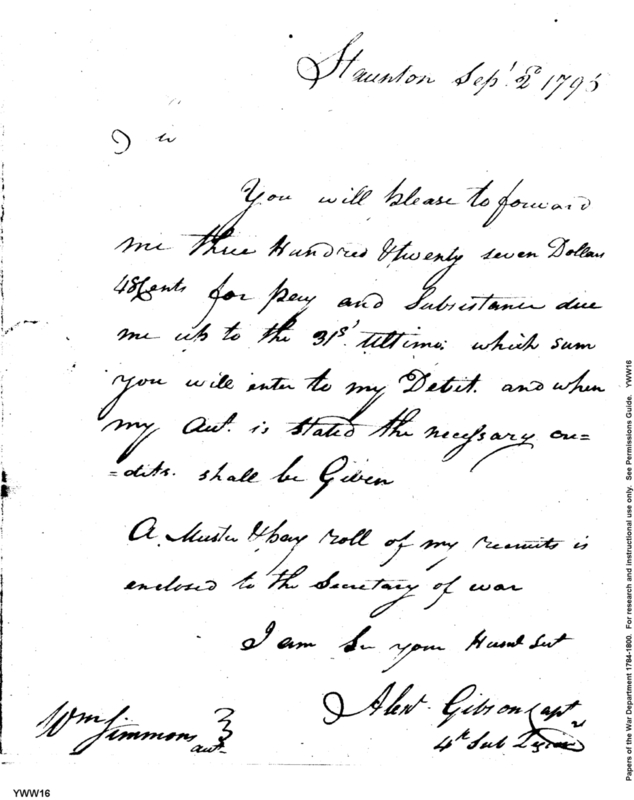 Staunton Sepr. 2d 1795
Sir
You will please to forward
me three Hundred & twenty seven Dollars
48 Cents for pay and Subsistance due
me up to the 31st. Ultimo: which sum
you will enter to my Debit. and when
my Acct. is stated the necessary cre=
=dits. shall be Given
A Muster & pay roll of my recruits is
enclosed to the Secretary of war
I am Sir your Humt Svt
Alexr. Gibson Capt
4th Sub
Wm Simmons
Acct
YWW16
Papers of the War Department 1784-1800. For research and instructional use only. See Permissions Guide. YWW16